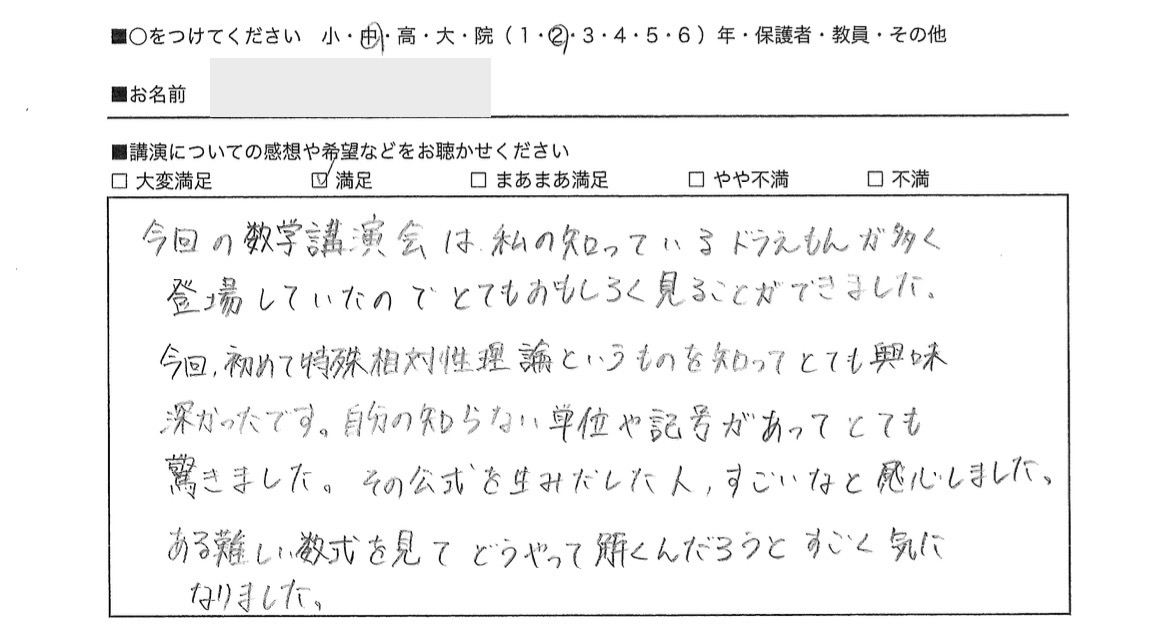 ■○をつけてください　小・中・高・大・院（1・2・3・4・5・6）年・保護者・教員・その他
■お名前
■講演についての感想や希望などをお聴かせください
□ 大変満足　☑ 満足　□ まあまあ満足　□ やや不満　□ 不満
今回の数学講演会は私の知っているドラえもんが多く
登場していたのでとてもおもしろく見ることができました。
今回,初めて特殊相対性理論というものを知ってとても興味
深かったです。自分の知らない単位や記号があってとても
驚きました。その公式を生みだした人,すごいなと感心しました。
ある難しい数式を見てどうやって解くんだろうとすごく気に
なりました。